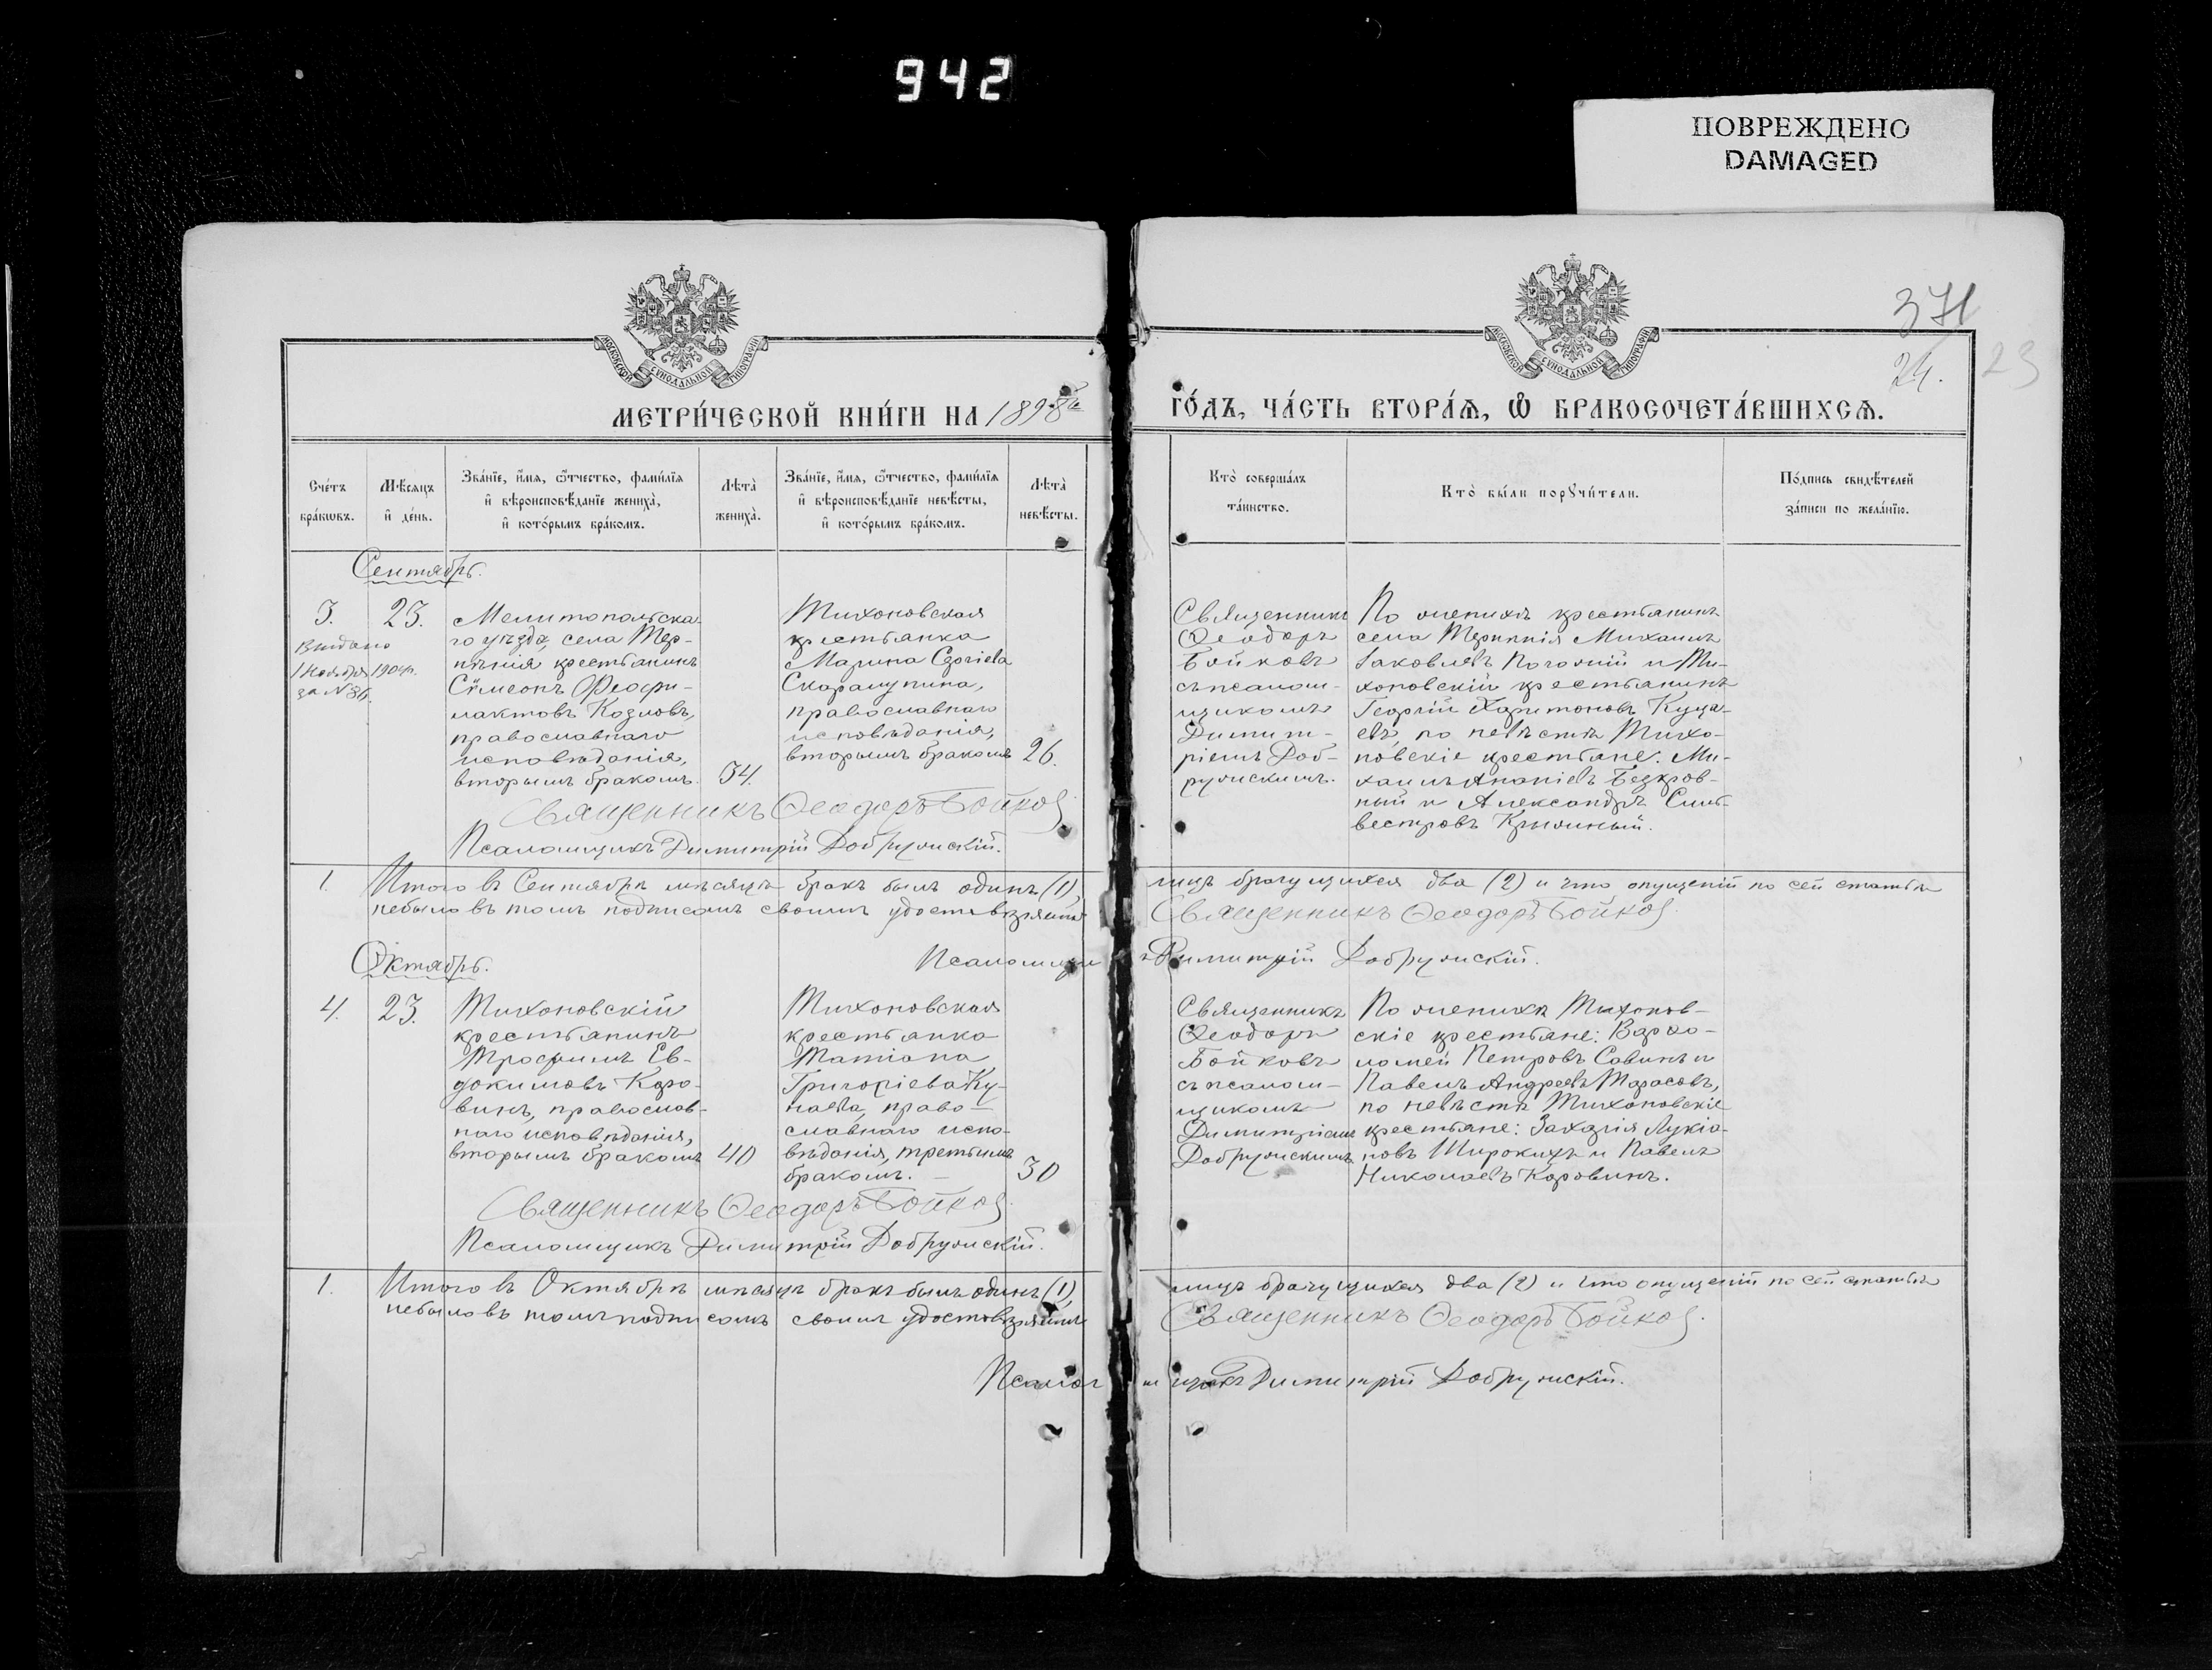 942
ПОВРЕЖДЕНО
DAMAGED
371
24.
23
МОСКОВСКОЙ СѴНОДАЛЬНОЙ ТИПОГРАФІИ
МОСКОВСКОЙ СѴНОДАЛЬНОЙ ТИПОГРАФІИ
МЕТРИ́ЧЕСКОЙ КНИ́ГИ НА 1898й
ГО́ДЪ, ЧА́СТЬ ВТОРА́Ѧ, Ѽ БРАКОСОЧЕТА́ВШИХСѦ.
Сче́тъ
бра́кѡвъ.
Мѣ́сяцъ
и҆ де́нь.
Зва́нїе, и҆́мѧ, ѻ҆́тчество, фами́лїѧ
и҆ вѣроисповѣ́данїе жениха̀,
и҆ кото́рымъ бра́комъ.
Лѣта̀
жениха̀.
Зва́нїе, и҆́мѧ, ѻ҆́тчество, фами́лїѧ
и҆ вѣроисповѣ́данїе невѣ́сты,
и҆ кото́рымъ бра́комъ.
Лѣта̀
невѣ́сты.
Кто̀ соверша́лъ
та́инство.
Кто̀ бы́ли порꙋчи́тели.
По́дпись свидѣ́телей
за́писи по жела́нїю.
Сентябрь.
3.
Выдано
1 Ноября 190
за № 36.
23.
Мелитопольска-
го уѣзда, села Тер-
пѣнія крестьянинъ
Сѵмеонъ Феофи-
лактовъ Козловъ,
православнаго
исповѣданія,
вторымъ бракомъ.
34.
Тихоновская
крестьянка
Марина
православнаго
исповѣданія,
вторымъ бракомъ
26.
Священникъ
Ѳеодоръ
Бойковъ
съ псалом-
щикомъ
Димит-
ріемъ Доб-
ружскимъ.
По женихѣ крестьянинъ
села Терпѣнія Михаилъ
Іаковлевъ и Ти-
хоновскій крестьянинъ
Георгій Харитоновъ Куца-
евъ, по невѣстѣ Тихо-
новскіе крестьяне: Ми-
хаилъ Ананіевъ Безкров-
ный и Александръ Силь-
вестровъ
Священникъ Ѳеодоръ Бойковъ
Псаломщикъ Димитрій Добружскій.
1. Итого въ Сентябрѣ мѣсяцѣ бракъ былъ одинъ (1), лицъ брачущихся два (2) и что опущеній по сей статьѣ
небыло въ томъ подписомъ своимъ удостовѣряемъ Священникъ Ѳеодоръ Бойковъ.
Псаломщикъ Димитрій Добружскій.
Октябрь.
4.
23.
Тихоновскій
крестьянинъ
Трофимъ Ев-
докимовъ Коро-
винъ, православ-
наго исповѣданія,
вторымъ бракомъ
40
Тихоновская
крестьянка
Татіана
Григоріева Ку-
наева, право-
славнаго испо-
вѣданія, третьимъ
бракомъ. –
30
Священникъ
Ѳеодоръ
Бойковъ
съ псалом-
щикомъ
Димитріемъ
Добружскимъ
По женихѣ Тихонов-
скіе крестьяне: Варѳо-
ломей Петровъ Савинъ и
Павелъ Андреевъ Тарасовъ,
по невѣстѣ Тихоновскіе
крестьяне: Захарія Лукіа-
новъ Широкихъ и Павелъ
Николаевъ Коровинъ.
Священникъ Ѳеодоръ Бойковъ.
Псаломщикъ Димитрій Добружскій.
1. Итого въ Октябрѣ мѣсяцѣ бракъ былъ одинъ (1), лицъ брачущихся два (2) и что опущеній по сей статьѣ
небыло въ томъ подписомъ своимъ удостовѣряемъ Священникъ Ѳеодоръ Бойковъ.
Псаломщикъ Димитрій Добружскій.